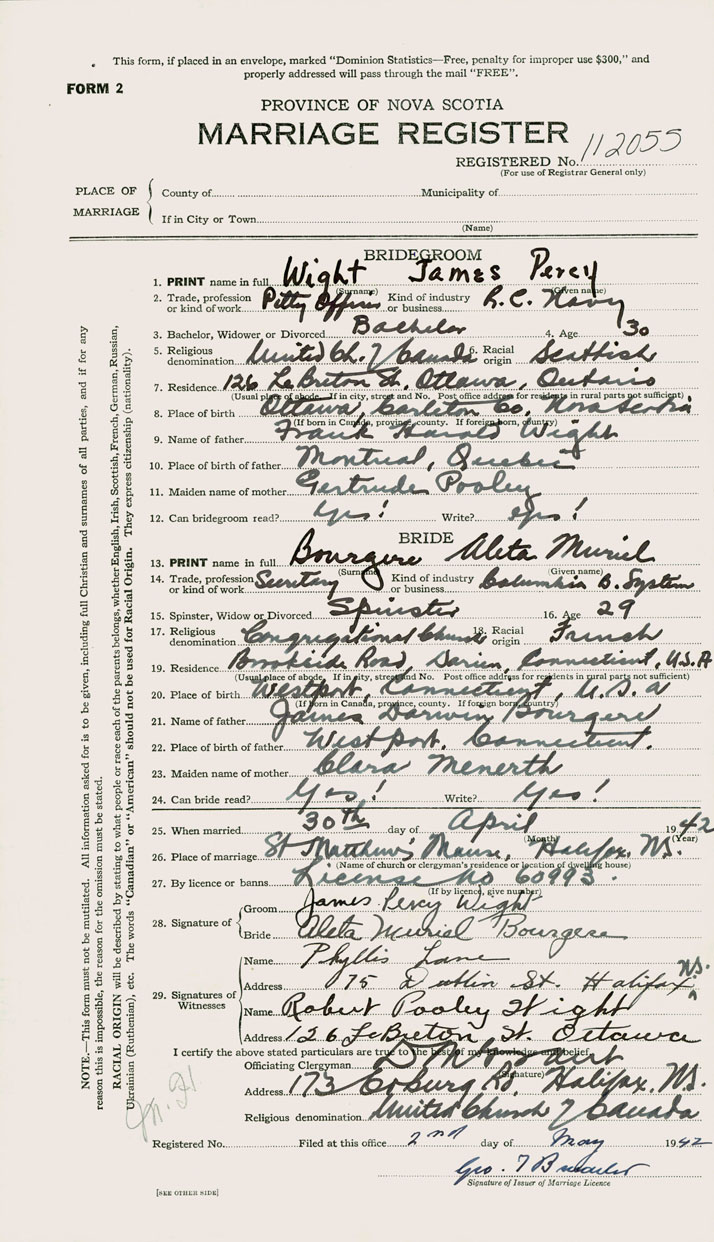 This form, if placed in an envelope, marked "Dominion Statistics—Free, penalty for improper use $300," and
properly addressed will pass through the mail "FREE".
FORM 2
PROVINCE OF NOVA SCOTIA
MARRIAGE REGISTER
REGISTERED No. 112055
(For use of Registrar General only)
PLACE OF MARRIAGE
County of Municipality of
If in City or Town
(Name)
BRIDEGROOM
1. PRINT name in full Wight James Percy
(Surname) (Given name)
2. Trade, profession or kind of work Petty Officer Kind of industry or business R.C. Navy
3. Bachelor, Widower or Divorced Bachelor 4. Age 30
5. Religious denomination United Ch. of Canada 6. Racial origin Scottish
7. Residence 126 LeBreton St., Ottawa, Ontario
(Usual place of abode. If in city, street and No. Post office address for residents in rural parts not sufficient)
8. Place of birth Ottawa, Carleton Co., Nova Scotia
(If born in Canada, province, county. If foreign born, country)
9. Name of father Frank Harold Wight
10. Place of father Montreal, Quebec
11. Maiden name of mother Gertrude Pooley
12. Can bridegroom read? Yes! Write? Yes!
BRIDE
13. PRINT name in full Bourgere Aleta Muriel
(Surname) (Given name)
14. Trade, profession or kind of work Secretary Kind of industry or business Columbia B. System
15. Spinster, Widow or Divorced Spinster 16. Age 29
17. Religious denomination Congregational Church 18. Racial origin French
19. Residence Brookside Road, Darien, Connecticut, U.S.A
(Usual place of abode. If in city, street and No. Post office address for residents in rural parts not sufficient)
20. Place of birth Westport, Connecticut, U.S.A
(If born in Canada, province, county. If foreign born, country)
21. Name of father James Darwin Bourgere
22. Place of birth of father Westport, Connecticut.
23. Maiden name of mother Clara Menerth
24. Can bride read? Yes! Write? Yes!
25. When married 30th day of April 1942
(Month) (Year)
26. Place of marriage St Matthew's Manse, Halifax, N.S.
(Name of church or clergyman's residence or location of dwelling house)
27. By licence or banns License No 60993
(If by licence, give number)
28. Signature of
Groom James Percy Wight
Bride Aleta Muriel Bourgere
29. Signatures of Witnesses
Name Phyllis Lane
Address 75 Dublin St. Halifax N.S.
Name Robert Pooley Wight
Address 126 LeBreton St. Ottawa
I certify the above stated particulars are true to the best of my knowledge and belief.
Officiating Clergyman
(Signature)
Address 173 Coburg Rd, Halifax, N.S.
Religious denomination United Church of Canada
Registered No. Filed at this office 2nd day of May 1942
Geo. T
Signature of Issuer of Marriage Licence
[SEE OTHER SIDE]
NOTE.—This form must not be mutilated. All information asked for is to be given, including full Christian and surnames of all parties, and if for any
reason this is impossible, the reason for the omission must be stated.
RACIAL ORIGIN will be described by stating to what people or race each of the parents belongs, whether English, Irish, Scottish, French, German, Russian,
Ukrainian (Ruthenian), etc. The words "Canadian" or "American" should not be used for Racial Origin. They express citizenship (nationality).